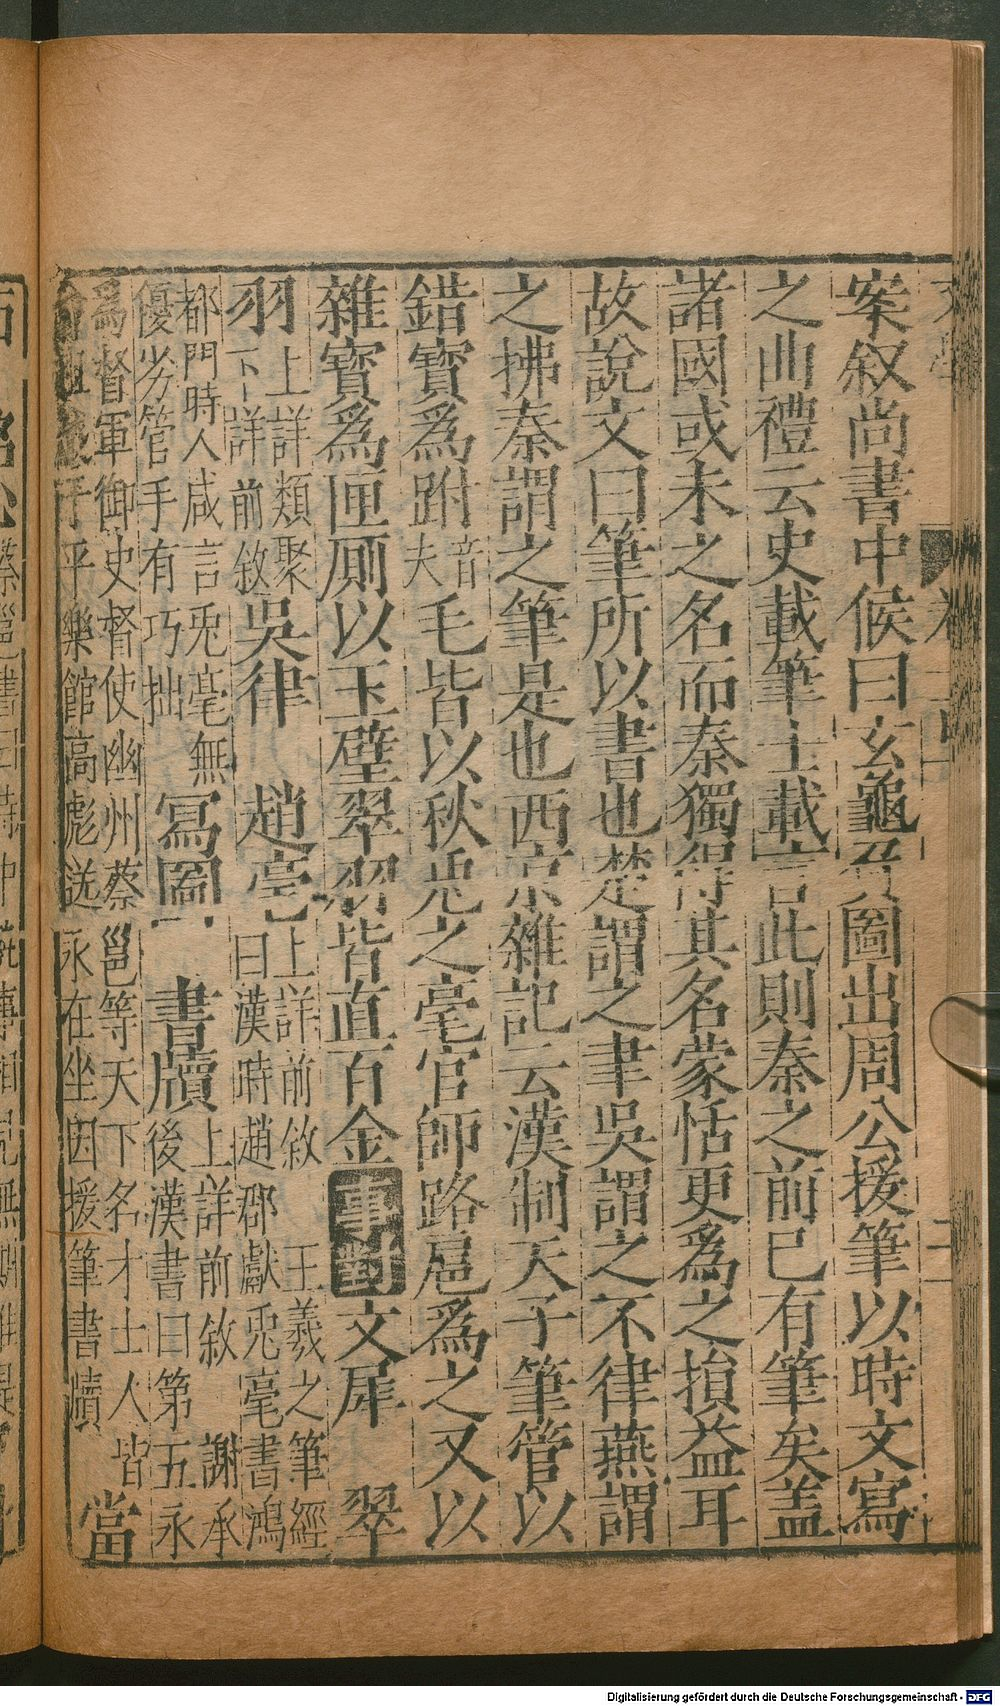 案叙尚書中候曰玄龜負圖出周公援筆以時文寫
之曲禮云史載筆士載言此則秦之前已有筆矣蓋
諸國或未之名而秦獨得其名蒙恬更爲之損益耳
故說文曰筆所以書也楚謂之聿吳謂之不律燕謂
之拂秦謂之筆是也西京雜記云漢制天子筆管以
錯寶爲跗音夫毛皆以秋兎之毫官師路扈爲之又以
雜寶爲匣厠以玉璧翠羽皆直百金事對文犀 翠
羽上詳類聚下詳前敘吳律 趙毫上詳前敘王羲之筆經曰漢時趙郡獻兎毫書鴻
都門時人咸言兎毫無優劣管手有巧拙寫圖 書牘上詳前敘謝承後漢書曰第五永
爲督軍御史督使幽州蔡邕等天下名才士人皆會祖餞于平樂館高彪送永在坐因援筆書牘當
Digitalisierung gefördert durch die Deutsche Forschungsgemeinschaft - DFG